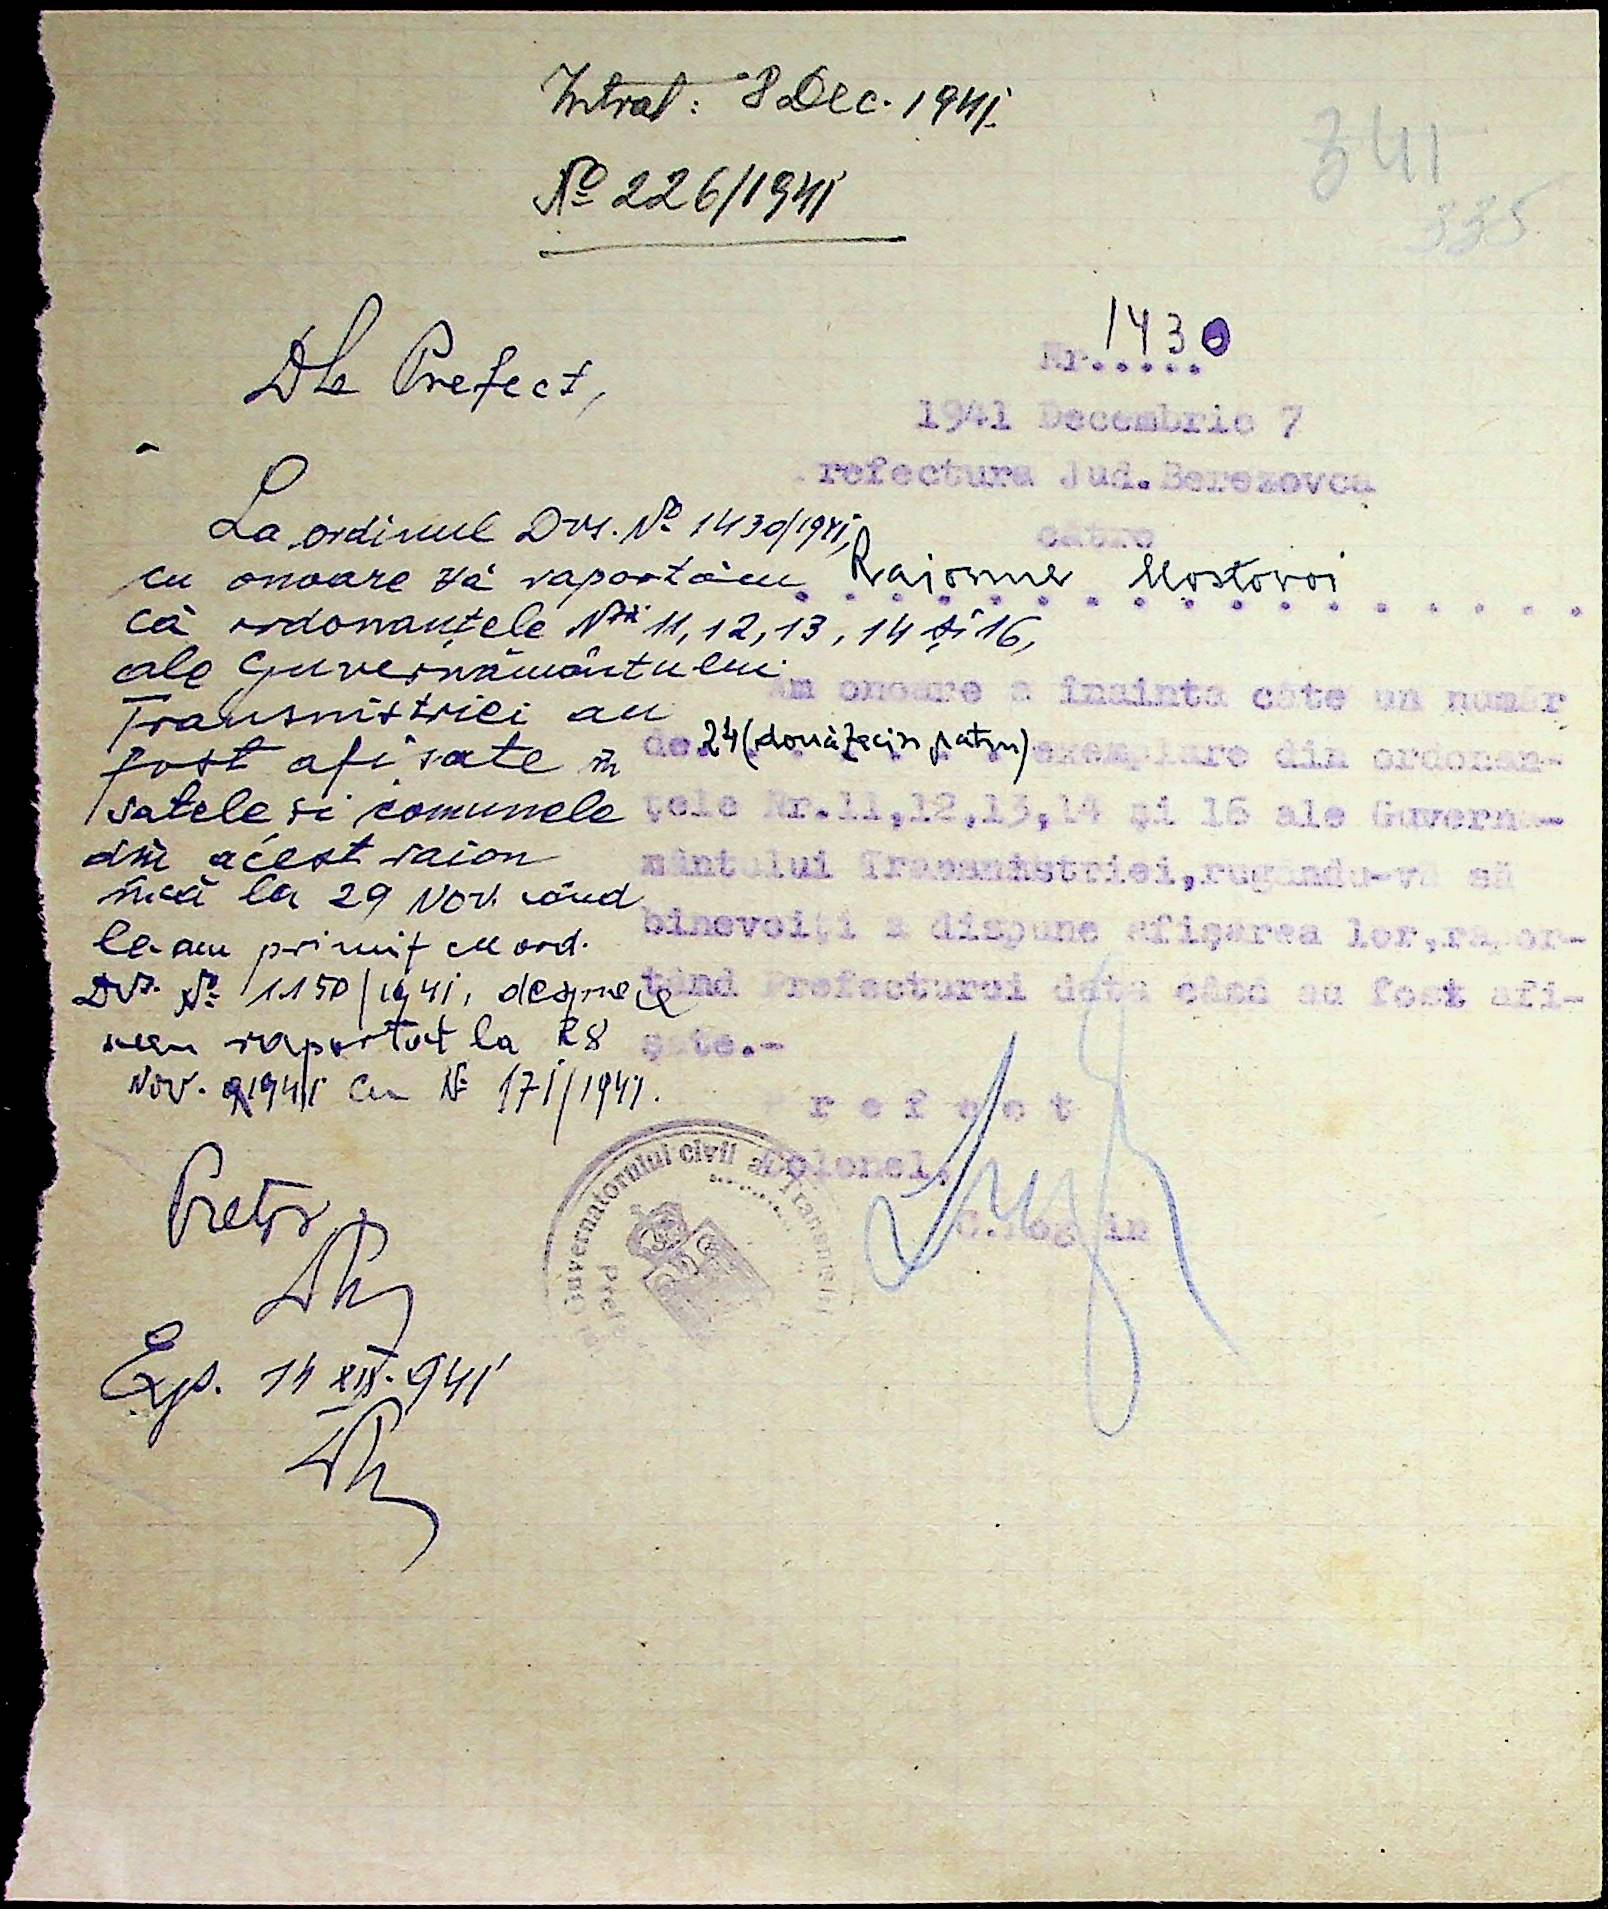 Intrat: 8 Dec. 1941
341
№ 226/1941
335
Dle Prefect,
La ordinul Dvs. № 1430/1941,
cu onoare vă raportăm
că ordonanțele 11, 12, 13, 14 și 16,
ale Guvernământului
Transnistriei au
fost afișate în
satele si comunele
din acest raion
încă la 29 Nov. când
le-am primit cu ord.
Dvs. № 1150/1941, despre ce
am raportat la 28
Nov. 1941 cu № 171/1941.
Pretor
Exp. 14 XII. 941
Nr..... 1430
1941 Decembrie 7
Prefectura Jud. Berezovca
către
Raionul Mostovoi
Am onoare a înainta câte un număr
de 24 (douăzeci și patru) exemplare din ordonan-
țele Nr.11,12,13,14 și 16 ale Guverna-
mântului Transnistriei,rugându-vă să
binevoiți a dispune afișarea lor,rapor-
tând Prefecturei data când au fost afi-
șate.-
P r e f e c t
Colonel,
Guvernatorului civil al Transnistriei
Prefe